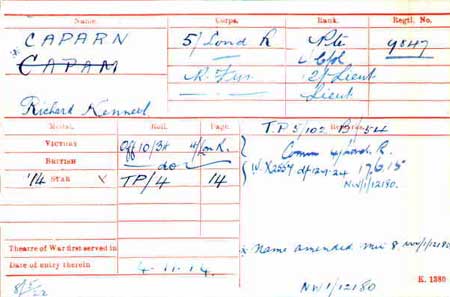 Name. Corps. Rank. Regtl. No.
CAPARN 5/Lond R Pte 9847
CAPAM " L/Cpl
R. Fus 2/Lieut
Richard Kenneth " Lieut
Medal. Roll. Page. T.P 5/102 B/54 Remarks.
VICTORY Off/10/38 4/Lon R.
BRITISH do Comm 4/Lond. R.
'14 STAR TP/4 14 17.6.15
NW/1/12180.
Theatre of War first served in
Date of entry therein 4-11-14. Name amended min 8 NW/1/12180
K. 1380
NW1/12180